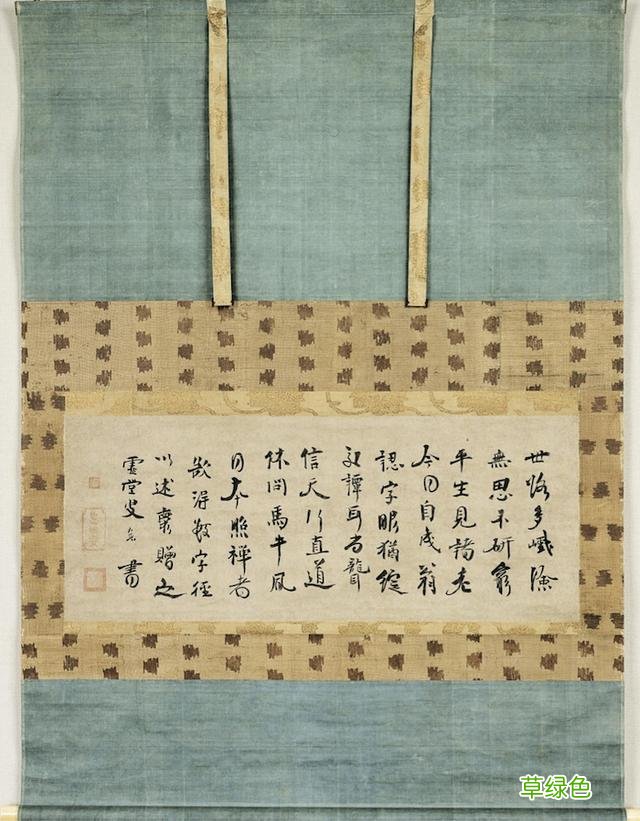 世路多巇嶮
無思不研窮
平生見諸老
今日自成翁
認字眼猶綻
交譚耳尚聾
信天行直道
休問馬牛風
日本照禅者
欲得数字径
以述懐贈之
虚堂叟書
草绿色